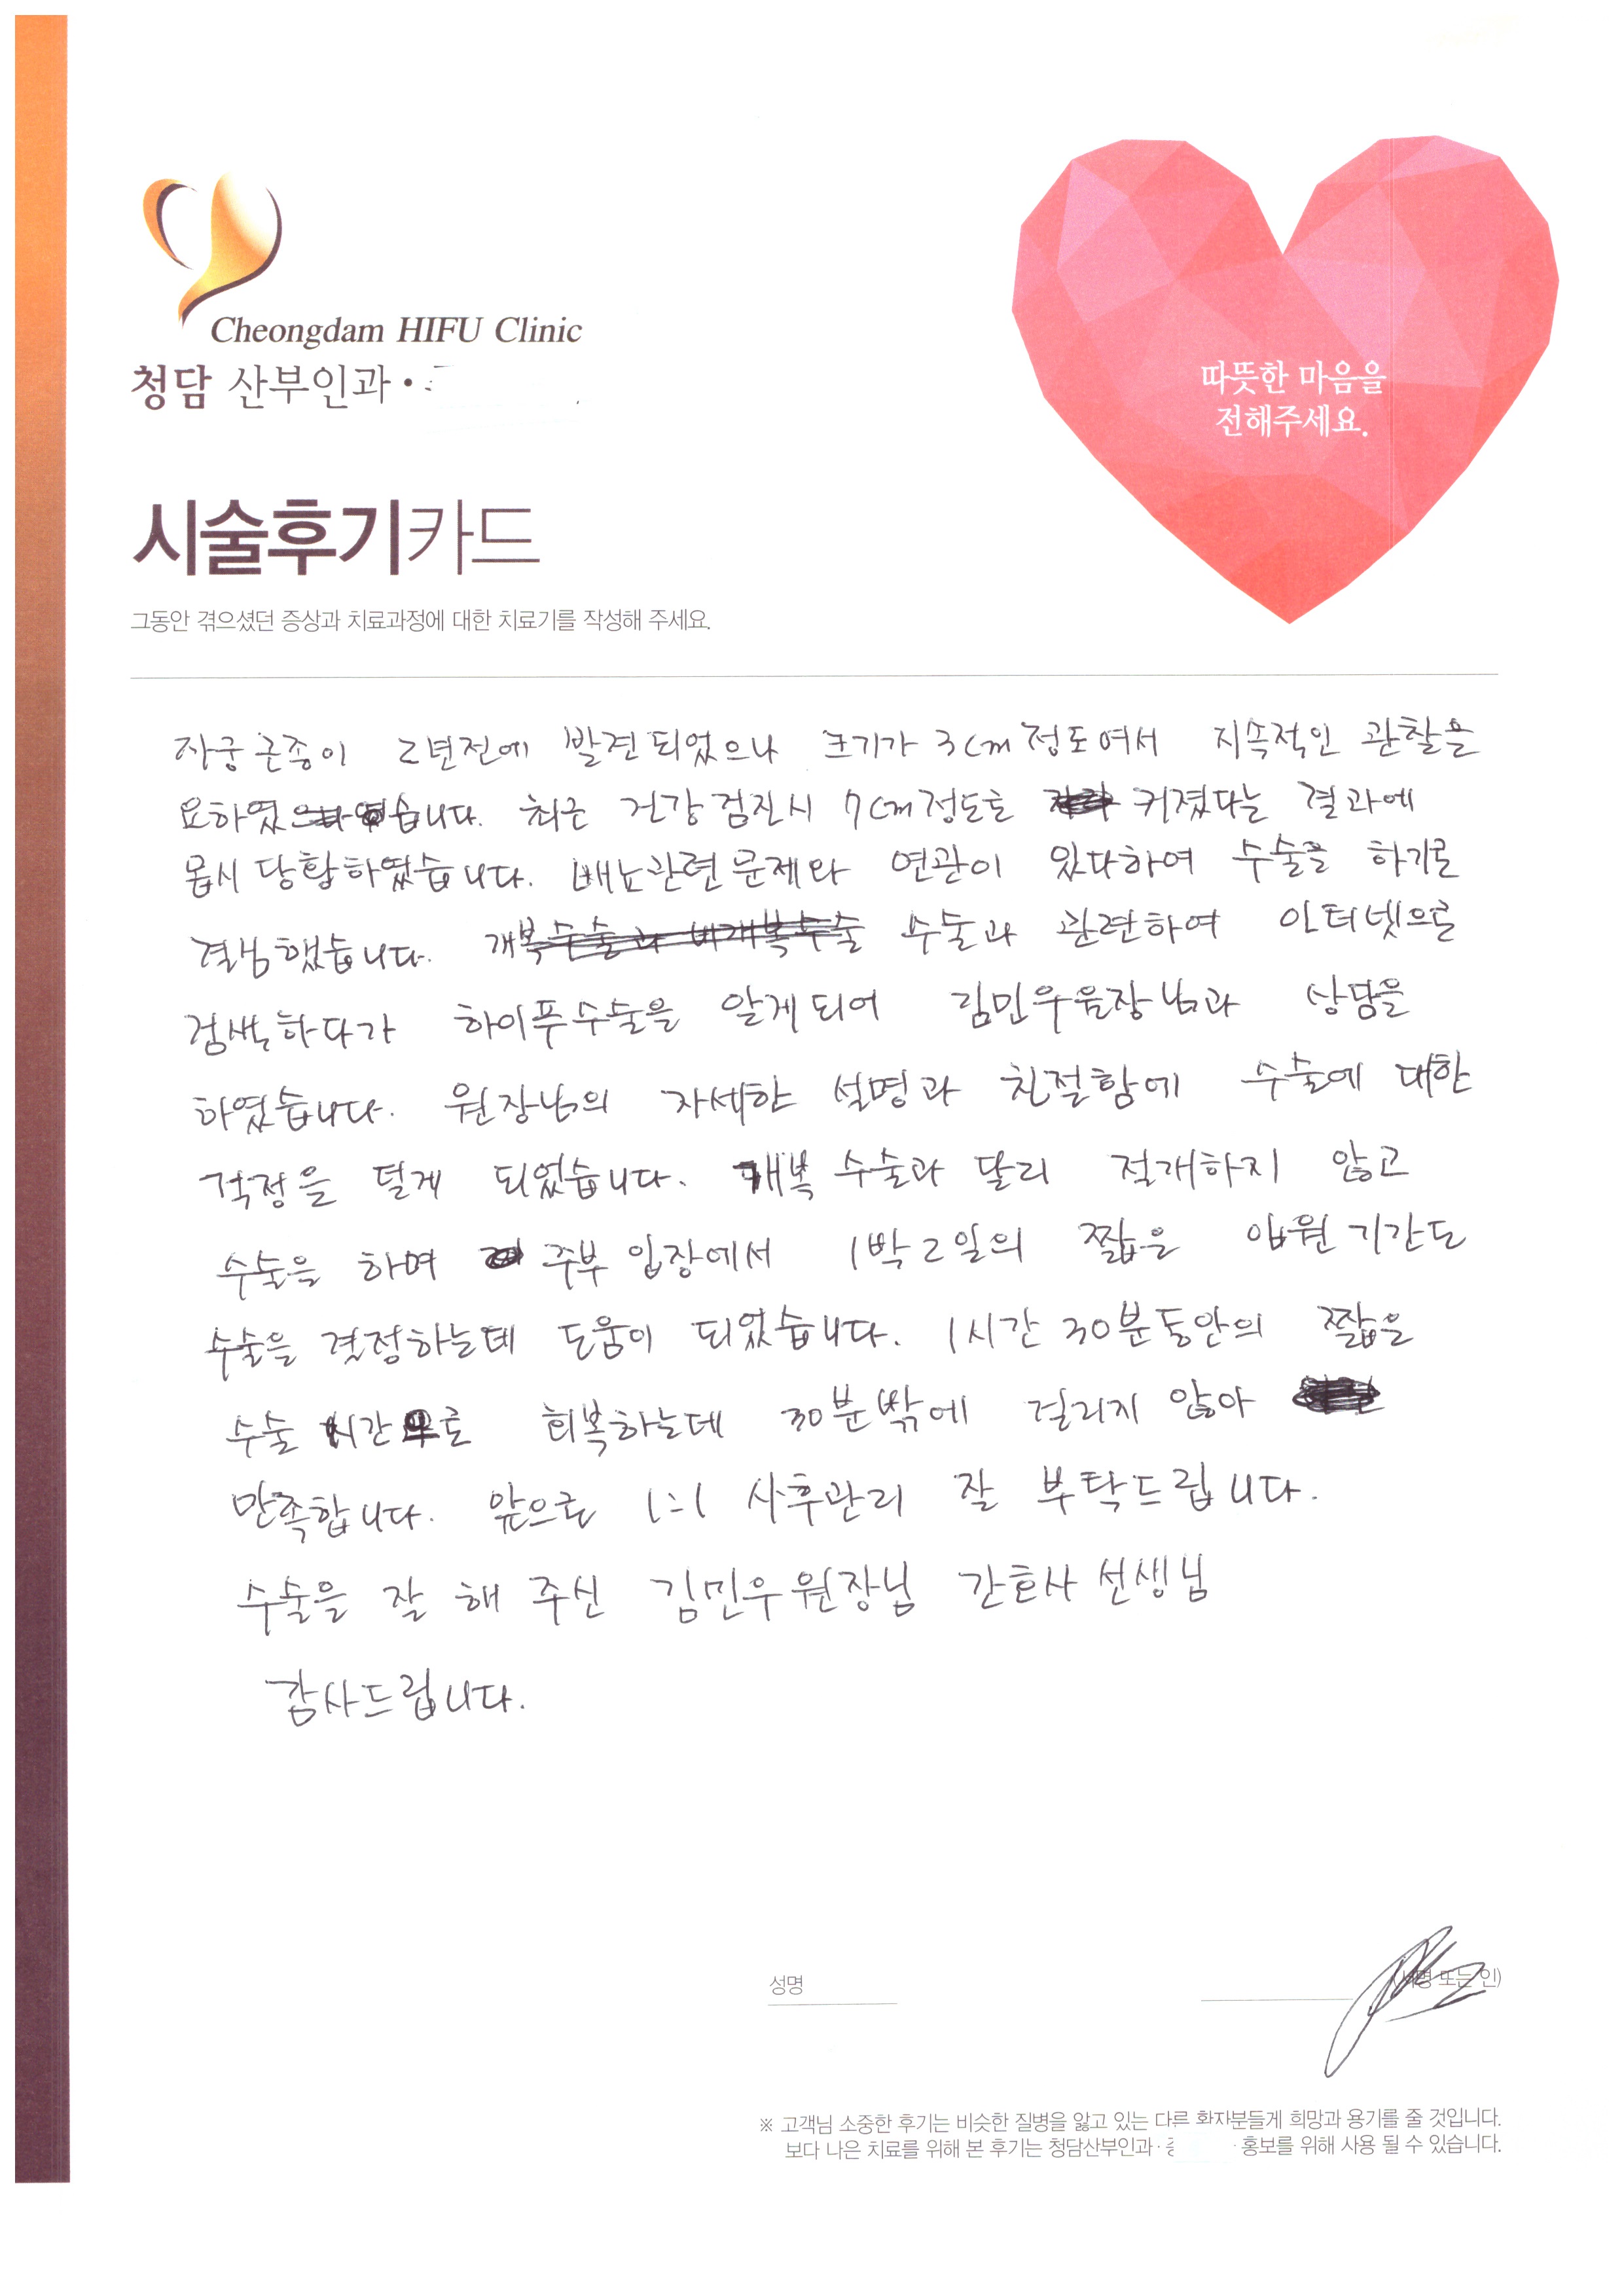 Cheongdam HIFU Clinic
청담 산부인과 •
따뜻한 마음을
전해주세요.
시술후기카드
그동안 겪으셨던 증상과 치료과정에 대한 치료기를 작성해 주세요.
자궁근종이 2년전에 발견되었으나 크기가 3cm정도여서 지속적인 관찰을
요하였습니다. 최근 건강검진시 7cm정도로 커졌다는 결과에
몹시 당황하였습니다. 배뇨관련 문제와 연관이 있다하여 수술을 하기로
결심했습니다. 개복수술과 비개복수술 수술과 관련하여 인터넷으로
검색하다가 하이푸수술을 알게되어 김민우원장님과 상담을
하였습니다. 원장님의 자세한 설명과 친절함에 수술에 대한
걱정을 덜게 되었습니다. 개복 수술과 달리 절개하지 않고
수술을 하며 주부 입장에서 1박2일의 짧은 입원기간도
수술을 결정하는데 도움이 되었습니다. 1시간 30분동안의 짧은
수술 시간으로 회복하는데 30분밖에 걸리지 않아
만족합니다. 앞으로 1:1 사후관리 잘 부탁드립니다.
수술을 잘 해 주신 김민우원장님 간호사 선생님
감사드립니다.
성명
또는 인)
※ 고객님 소중한 후기는 비슷한 질병을 앓고 있는 다른 환자분들게 희망과 용기를 줄 것입니다.
보다 나은 치료를 위해 본 후기는 청담산부인과· · 홍보를 위해 사용 될 수 있습니다.